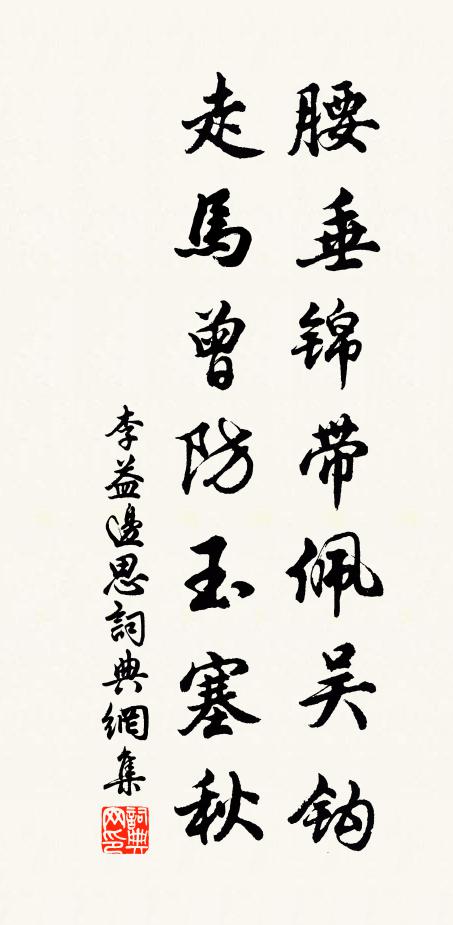 腰垂锦带佩吴钩
走馬曾防玉塞秋
李益邊思詞典網集
詞典网印